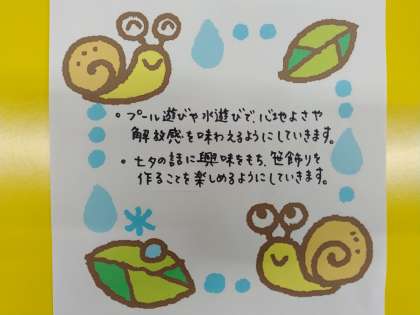 ・プール遊びや水遊びで、心地よさや
解放感を味わえるようにしていきます。
・七夕の話に興味をもち、笹飾りを
作ることを楽しめるようにしていきます。